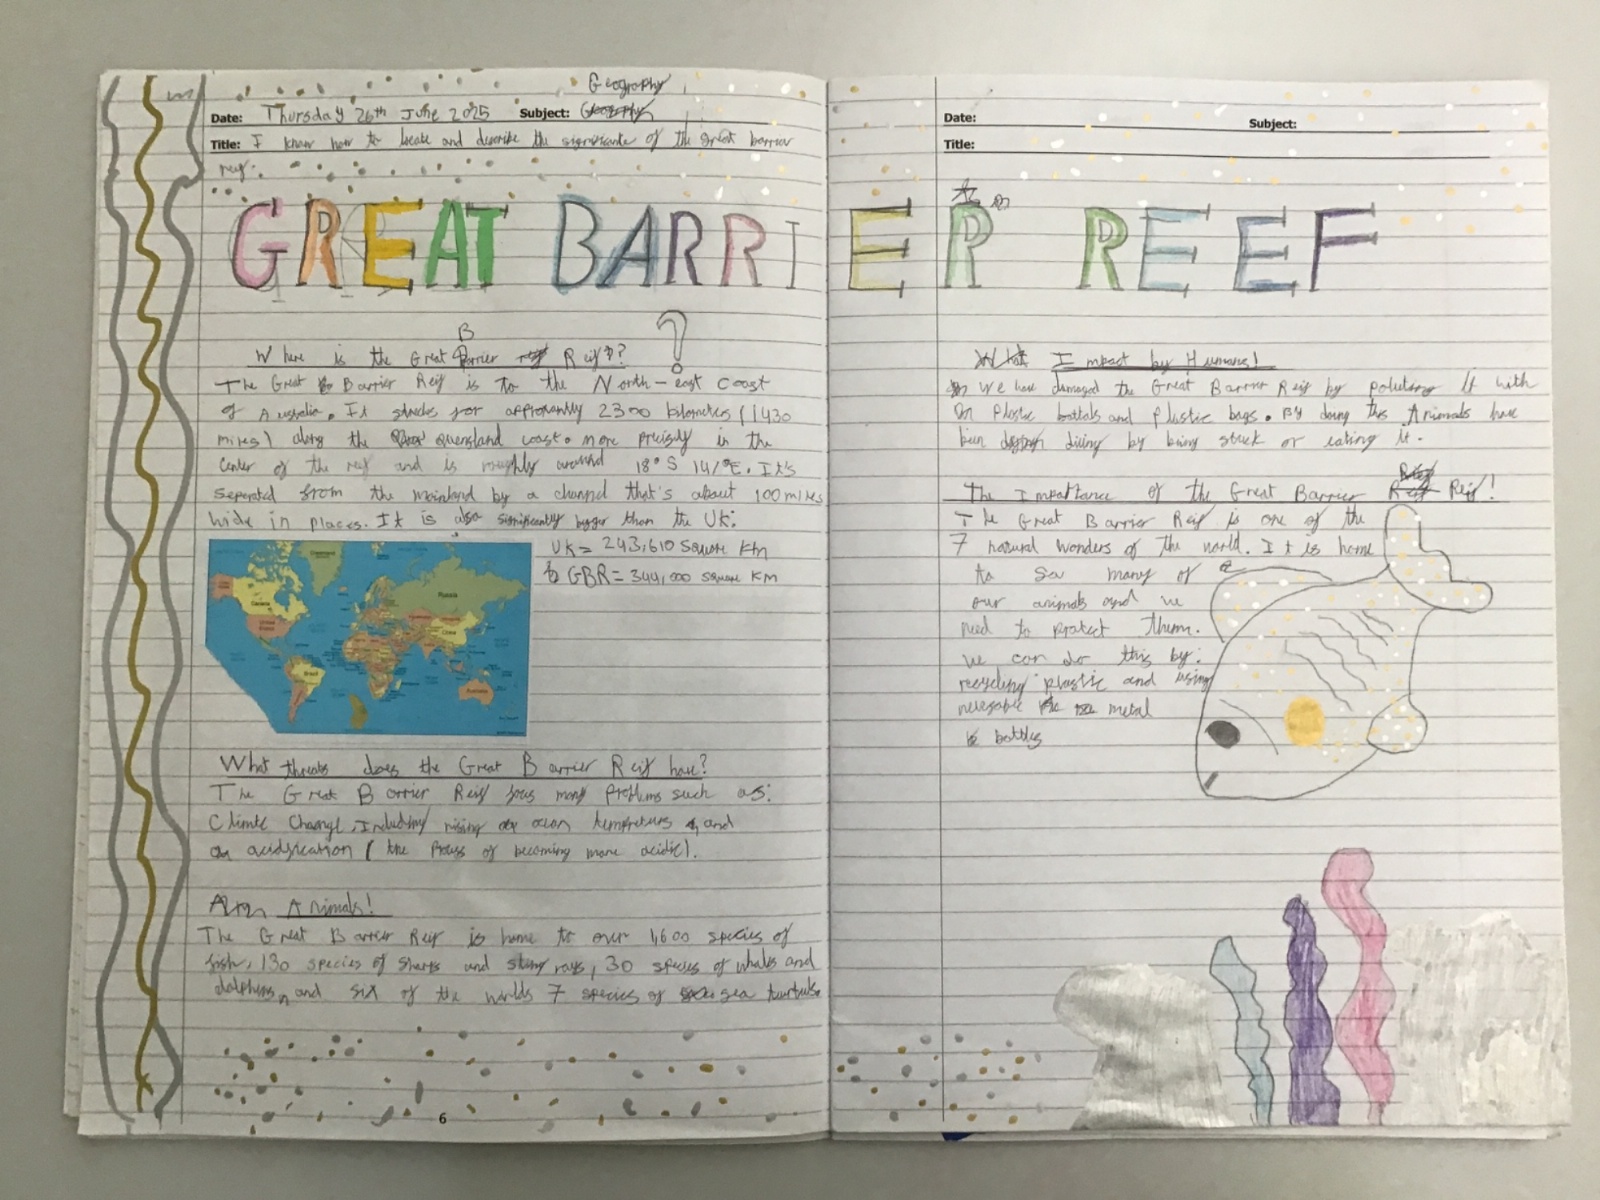 Geography
Date: Thursday 26th June 2025 Subject:
Title: I know how to locate and describe the significante of the great barrier
reif.
GREAT BARRIER REEF
B
Where is the Great Barrier Reif?
?
The Great Barrier Reif is to the North-east coast
of Australia. It streches for approxantly 2300 kilometres (1430
miles) along the Quensland coast. more precisely in the
center of the reif and is roughly around 18°S 147°E. It's
Seperated from the mainland by a channel that's about 100 miles
wide in places. It is also significantly bigger than the UK:
UK = 243,610 square km
GBR = 344,000 square KM
Greenland
Canada
United States
Russia
China
Brazil
Australia
What threats does the Great Barrier Reif have?
The Great Barrier Reif faces many problems such as:
Climte Change, Including rising ocean tempretures and
acidification (the Process of becoming more acidic).
Animals!
The Great Barrier Reif is home to over 1,600 species of
fish, 130 species of sharks and sting rays, 30 species of whales and
dolphins, and six of the worlds 7 species of sea tourtuls.
6
Date: Subject:
Title:
Impact by Humans!
We have damaged the Great Barrier Reif by poluting It with
Plastic bottals and plustic bags. By doing this Animals have
been diving by being stuck or eating it.
The Importance of the Great Barrier Reif!
The Great Barrier Reif is one of the
7 natural wonders of the world. It is home
to so many of
our animals and we
need to protect them.
we can do this by:
recycling plastic and using
metal
bottles